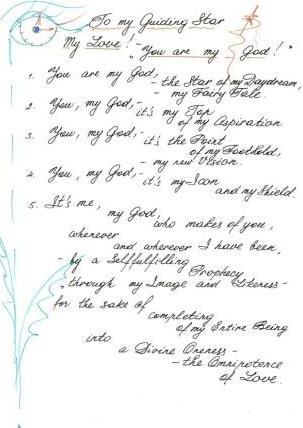 To my Guiding Star
My Love! - "You are my God!"
1. You are my God,
- the Star of my Daydream,
- my Fairy Tale.
2. You, my God, -
it's my Top
of my Aspiration
3. You, my God, -
it's the Point
of my Foothold,
- my new Vision.
4. You, my God, -
it's my Icon
and my Shield.
5. It's me,
my God,
who makes of you,
whenever
and wherever I have been,
- by a Selffulfilling
Prophecy
through my Image and Likeness -
for the sake of
completing
of my Entire Being
into
a Divine Oneness -
- the Omnipotence
of Love.